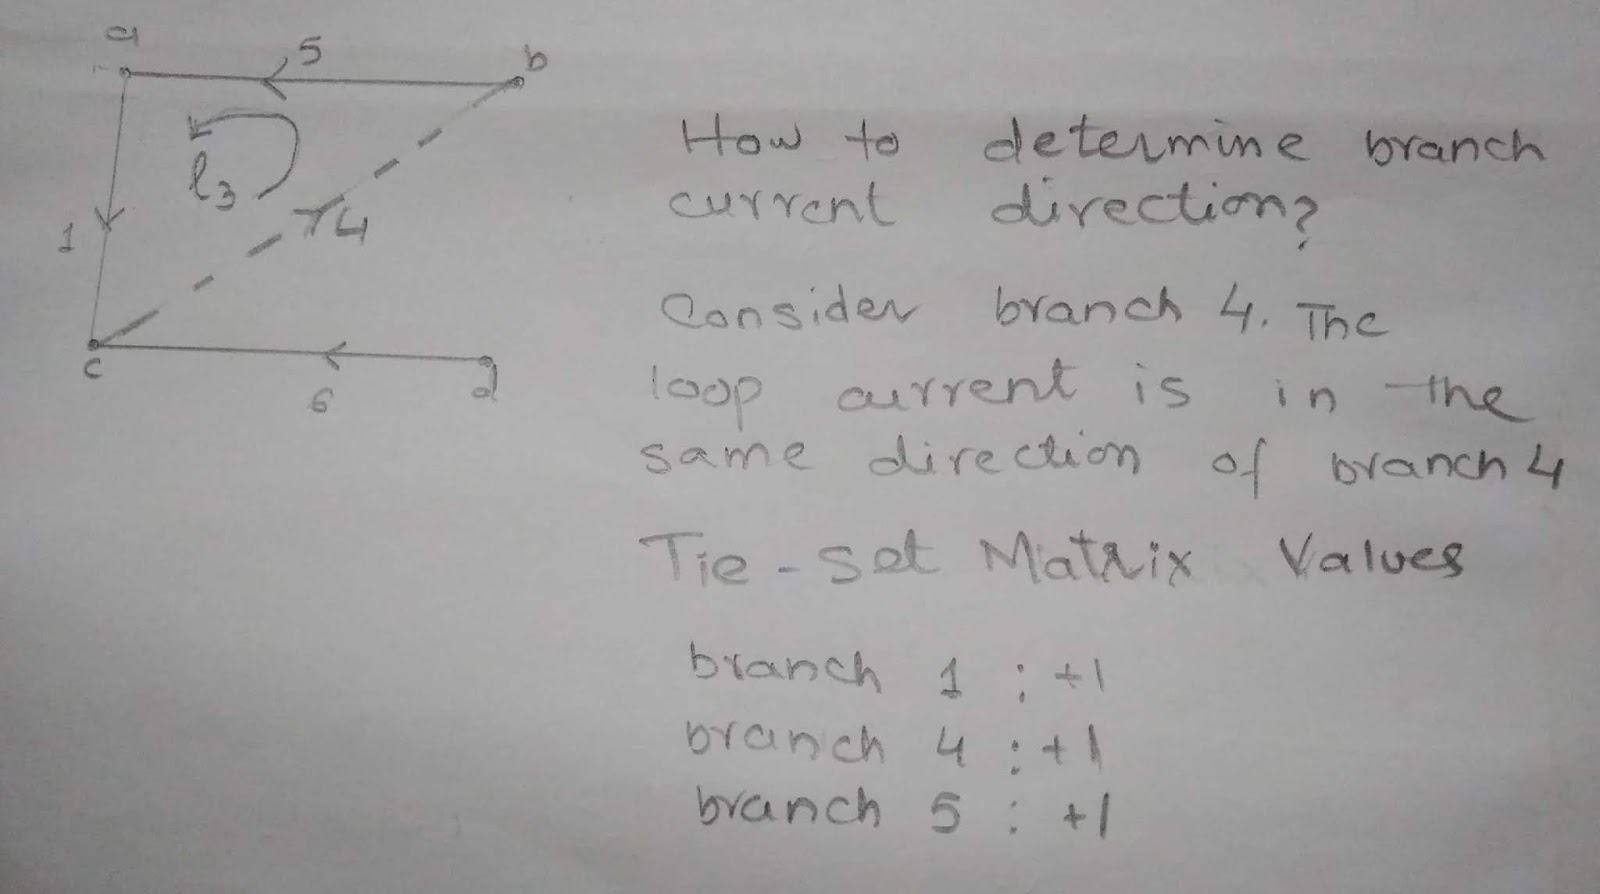 a
5
b
l3
4
1
c
6
d
How to determine branch
current direction?
Consider branch 4. The
loop current is in the
same direction of branch 4
Tie-set Matrix Values
branch 1 : +1
branch 4 : +1
branch 5 : +1